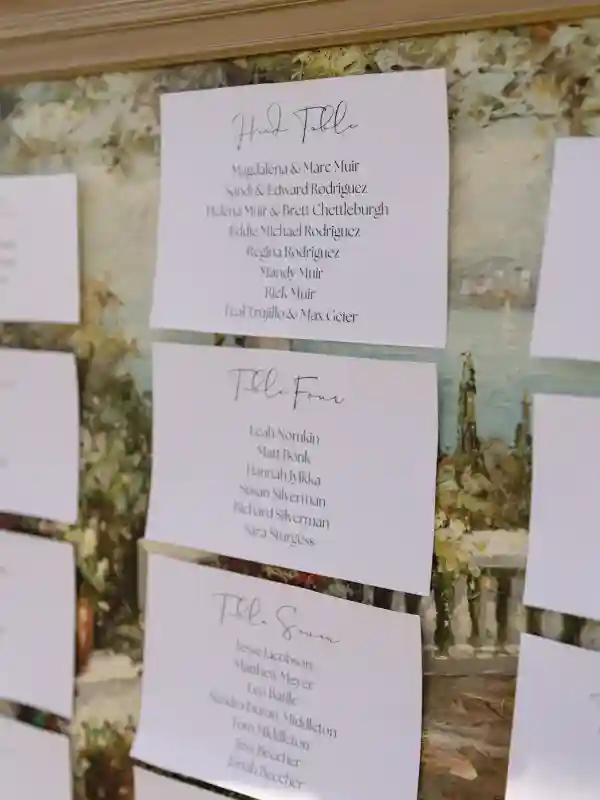 Head Table
Magdalena & Marc Muir
Sandi & Edward Rodriguez
Helena Muir & Brett Chettleburgh
Eddie Michael Rodriguez
Regina Rodriguez
Mandy Muir
Rick Muir
Trujillo & Max Geier
Table Four
Leah Nomkin
Matt Bonk
Hannah Jylkka
Susan Silverman
Richard Silverman
Sara Sturgess
Table Seven
Jesse Jacobson
Matthew Meyer
Middleton
Tom Middleton
Beecher
Jonah Beecher